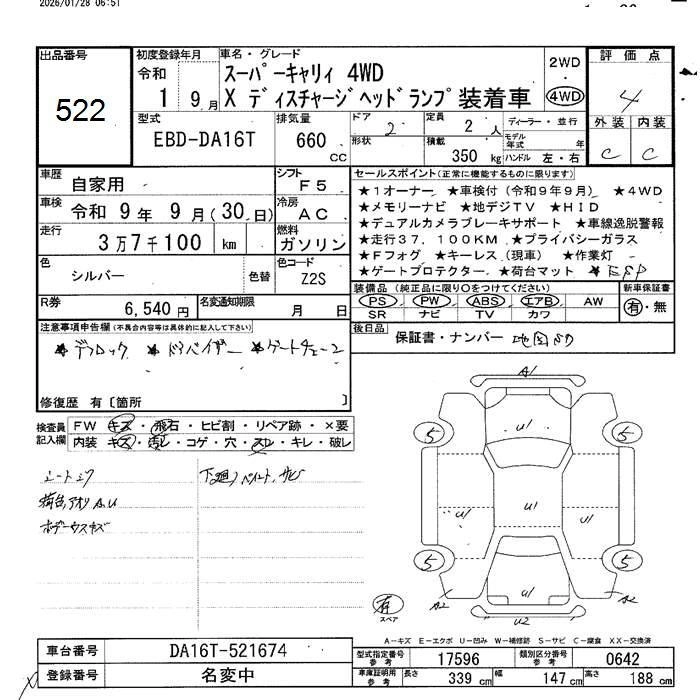 2026/01/28 06:51
出品番号
522
初度登録年月
令和
1 9月
車名・グレード
スーパーキャリィ 4WD
X ディスチャージヘッドランプ装着車
2WD
・
4WD
評価点
4
外装 内装
C C
型式
EBD-DA16T
排気量
660
cc
ドア
2
形状
定員
2人
積載
350 kg
ディーラー・並行
モデル年式 年
ハンドル 左・右
車歴
自家用
シフト
F5
車検
令和 9年 9月(30日)
冷房
AC
走行
3万7千100 km
燃料
ガソリン
色
シルバー
色替
色コード
Z2S
R券
6,540円
名変通知期限
月 日
セールスポイント(正常に機能するものに限ります)
★1オーナー ★車検付(令和9年9月) ★4WD
★メモリーナビ ★地デジTV ★HID
★デュアルカメラブレーキサポート ★車線逸脱警報
★走行37,100KM ★プライバシーガラス
★Fフォグ ★キーレス(現車) ★作業灯
★ゲートプロテクター ★荷台マット ★ESP
装備品(純正品に限り○をつけてください)
PS PW ABS エアB AW
SR ナビ TV カワ
新車保証書
有・無
後日品
保証書・ナンバー
注意事項申告欄(不具合内容等は具体的に記入して下さい)
★デフロック ★ドアバイザー ★ゲートチェーン
修復歴 有[箇所 ]
検査員
記入欄
FW キズ・飛石・ヒビ割・リペア跡・×要
内装 キズ・汚レ・コゲ・穴・スレ・キレ・破レ
シートシワ
荷台,アオリ A.U
ボデー小キズ
下廻りペイント、サビ
A1
U1
5 5
U1
U1 U1
5 5
U1
A2 A2
U2
有
スペア
A-キズ E-エクボ U-凹み W-補修跡 S-サビ C-腐食 XX-交換済
車台番号
DA16T-521674
登録番号
名変中
型式指定番号
参考
17596
類別区分番号
参考
0642
車庫証明用
参考
長さ
339 cm
幅
147 cm
高さ
188 cm